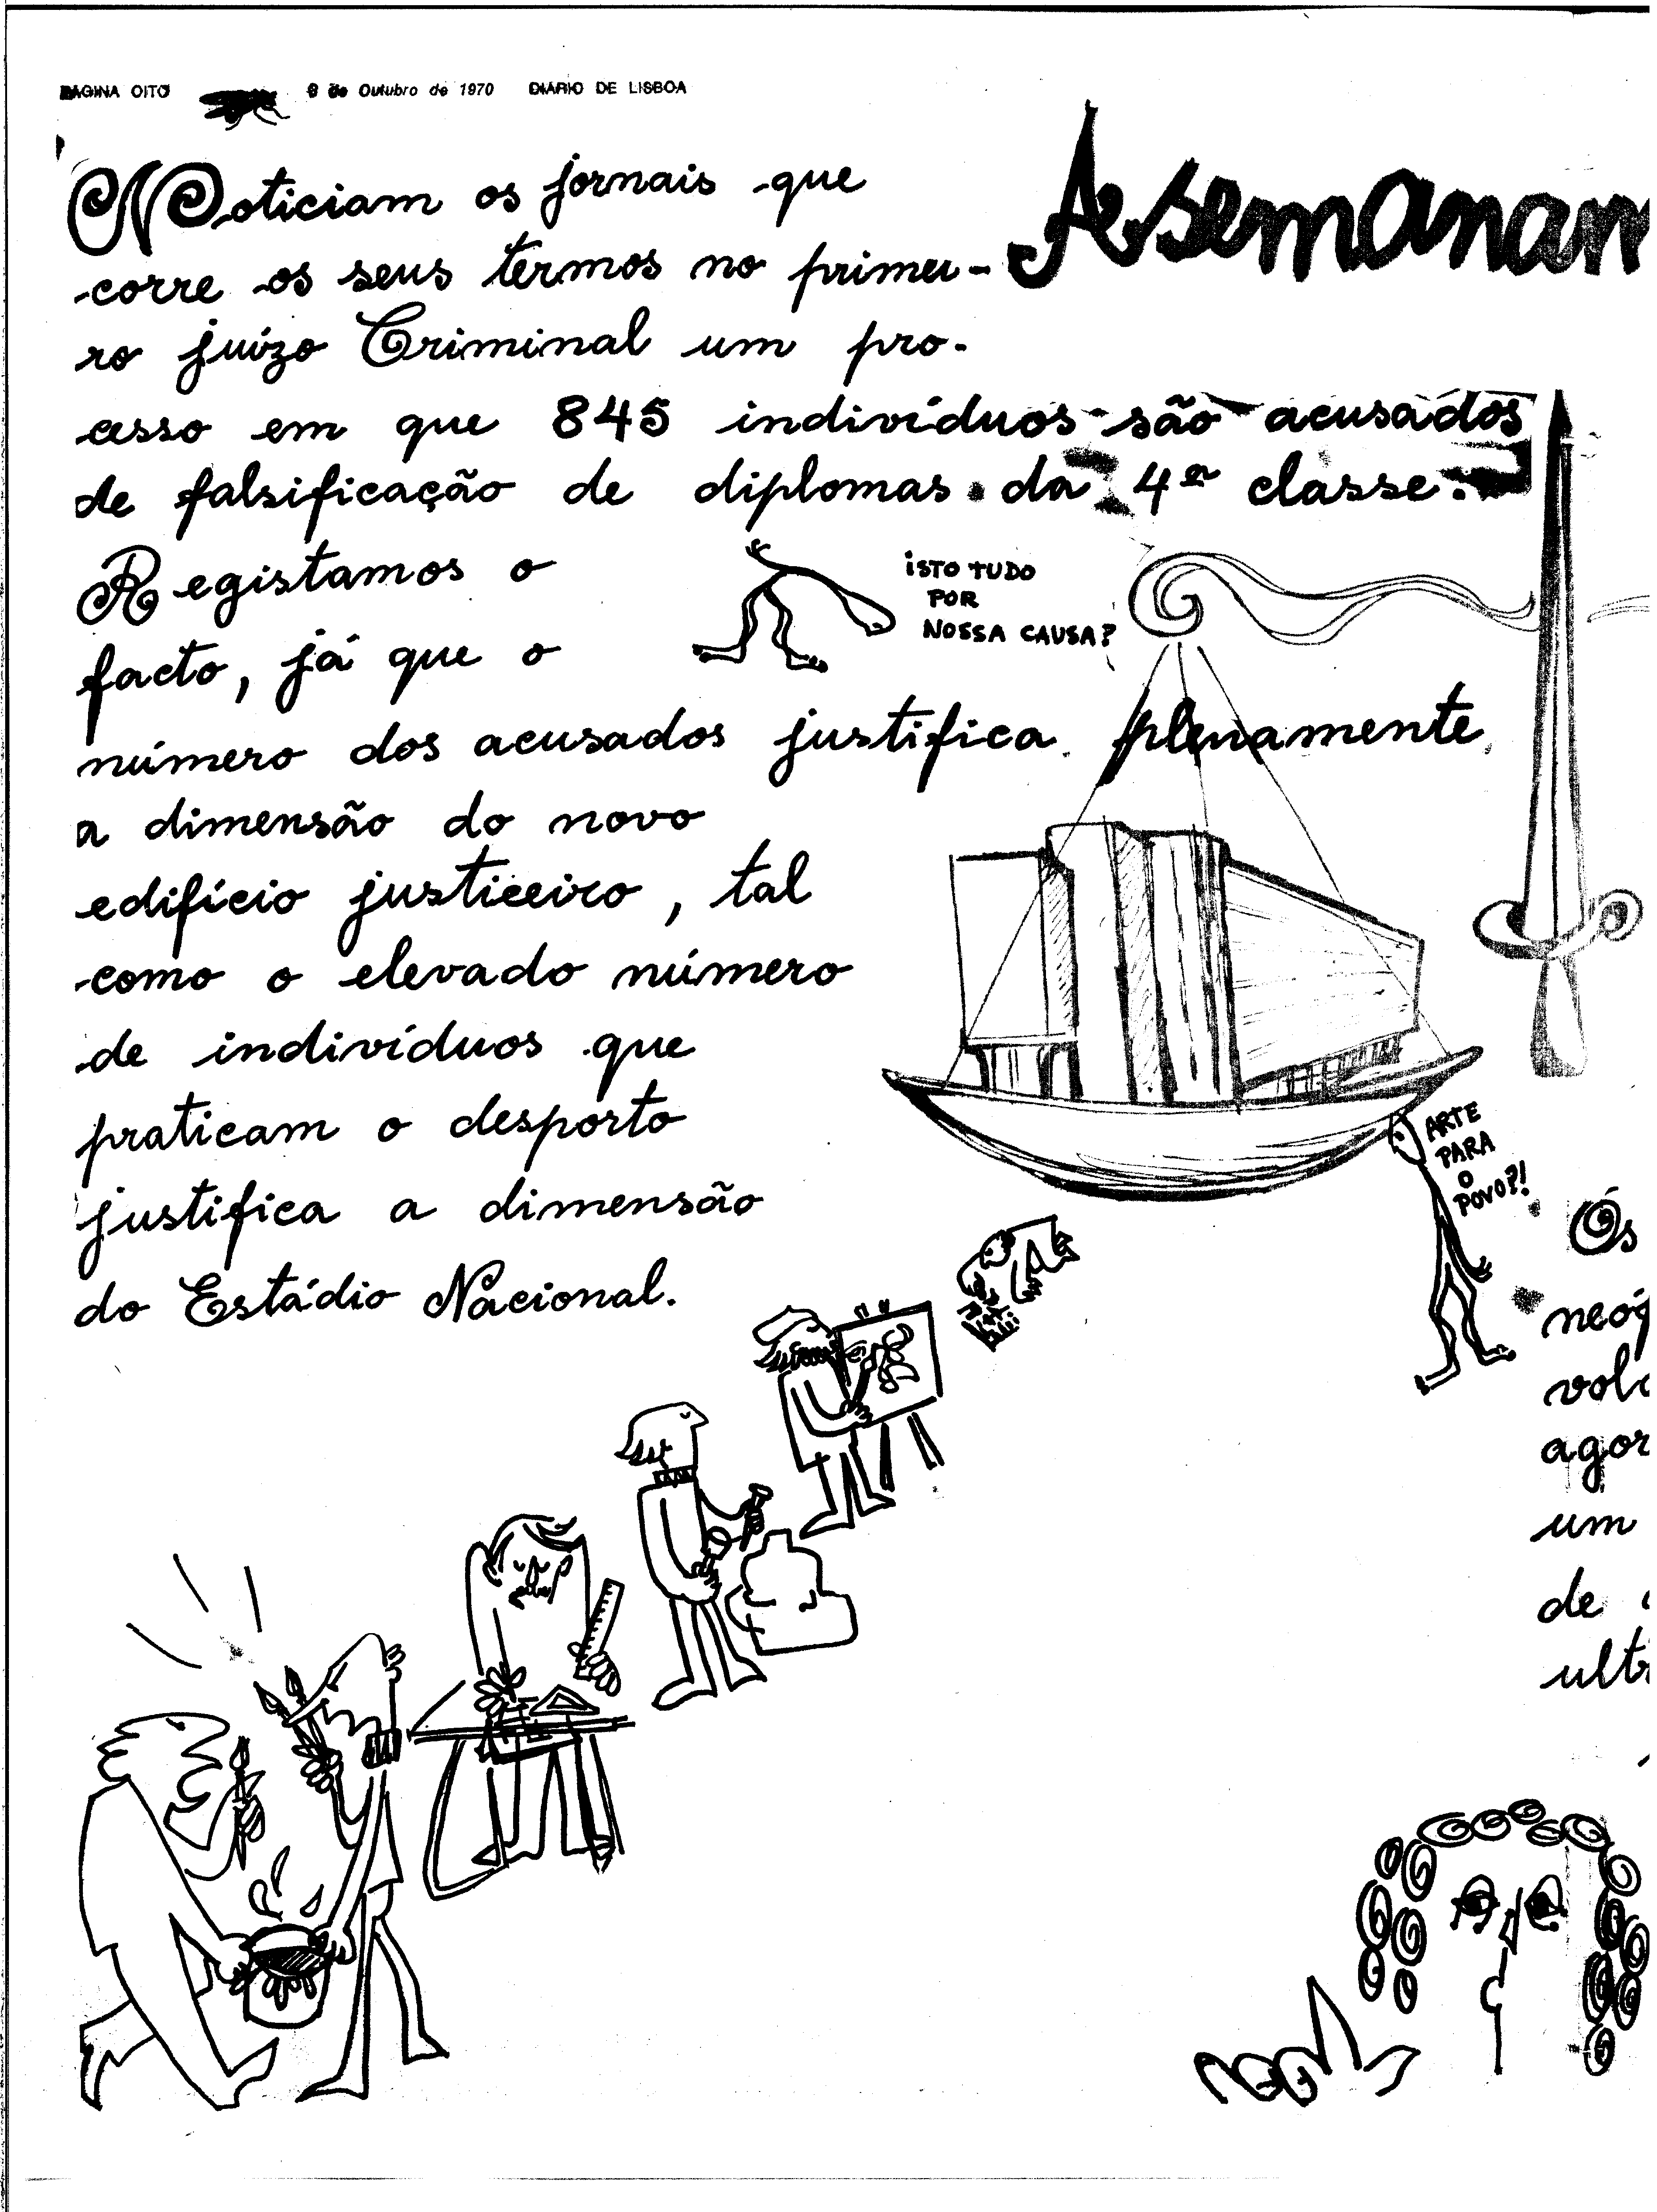 PÁGINA OITO 9 de Outubro de 1970 DIÁRIO DE LISBOA
Asemanam
Noticiam os jornais que
corre os seus termos no primei-
ro juízo Criminal um pro-
cesso em que 845 indivíduos são acusados
de falsificação de diplomas da 4ª classe.
Registamos o
facto, já que o
número dos acusados justifica plenamente
a dimensão do novo
edifício justiceiro, tal
como o elevado número
de indivíduos que
praticam o desporto
justifica a dimensão
do Estádio Nacional.
ISTO TUDO
POR
NOSSA CAUSA?
ARTE
PARA
O
POVO?!
Os
agor
um
de
ult